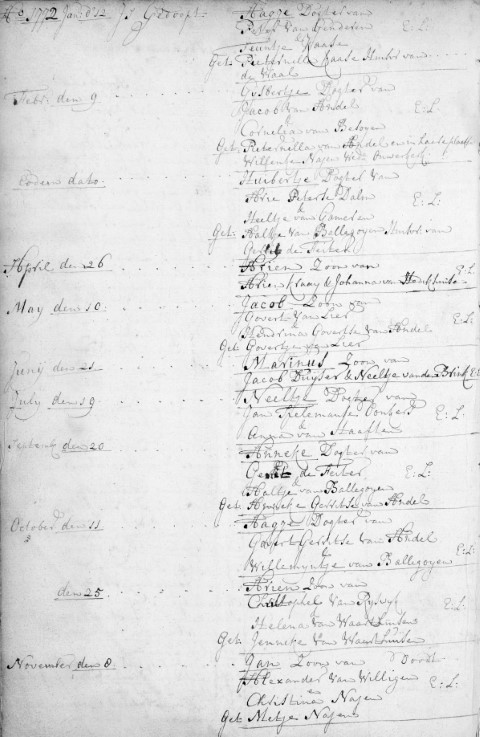 Ao. 1772 Jan: d. 12 Is Gedoopt. Hagje Dogter van
Peter van Genderen
Teuntje Kaase
Get: Peternella Kaase Huisvr van
de Waal
Febr: den 9 Eijsbertje Dogter van
Jacob van Andel E: L:
Cornelia van Beloijen
Get: Pieternella van Andel en in haar plaatse
Willemke Najen Wed:
Eodem dato. Huibertje Dogter van
Arie Peterse Dalm E: L:
&
Neeltje van Gameren
Get: Aaltje van Ballegoijen Huisvr. van
Gerrit de Feiter
April den 26 Arien Zoon van E: L:
Arien Kraaij & Johanna van
May den 10. Jacob Zoon van
Govert van Lier E: L:
&
Hendrina Goverse van Andel
Get: Govertje van Lier
Junij den 21 Marinus Zoon van
Jacob Duijster & Neeltje van den Brink E: L:
July den 19 Neeltje Dogter van
Jan Tielemanse E: L:
&
Anna van Haaften
Septemb den 20 Anneke Dogter van
Gerrit de Feiter E: L:
&
Aaltje van Ballegoijen
Get: Gerritse van Andel
October den 11 Hagje Dogter van
Govert Gerritse van Andel
& E: L:
Willemijntje van Ballegoijen
den 25 Arien Zoon van
Christophel van Rijswijk E: L:
&
Helena van Waardhuisen
Get: Jenneke van Waardhuisen
November den 8. Jan Zoon van
Alexander van Willigen E: L:
&
Christina Najen
Get: Metje Najen